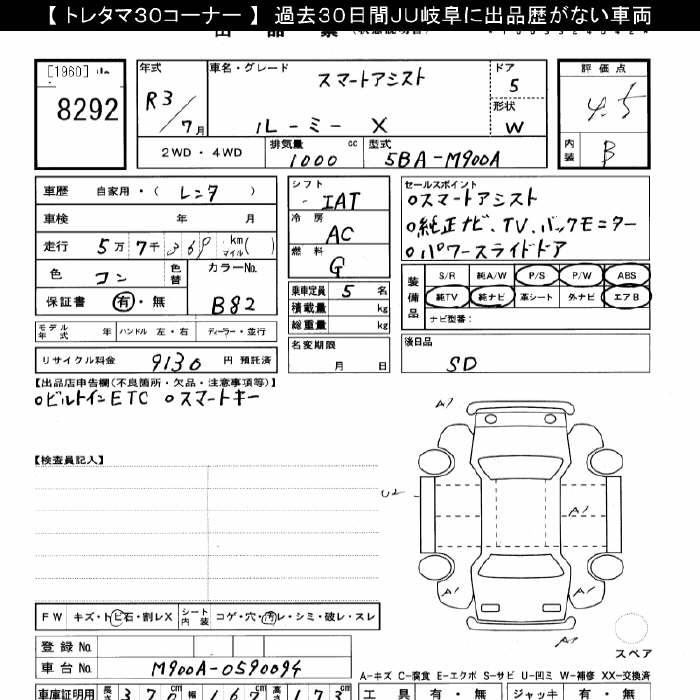 【 トレタマ30コーナー 】 過去30日間JU岐阜に出品歴がない車両
[1960]
8292
年式
R3/7月
車名・グレード
スマートアシスト
ルーミー X
ドア
5
形状
W
評価点
4.5
内装
B
2WD・4WD
排気量 cc
1000
型式
5BA-M900A
車歴 自家用・( レンタ )
車検 年 月
走行 5万7千369 km マイル( )
色 コン 色替
カラーNo.
B82
保証書 有・無
モデル年式 年 ハンドル 左・右 ディーラー・並行
リサイクル料金 9130 円 預託済
シフト
IAT
冷房
AC
燃料
G
乗車定員 5 名
積載量 kg
総重量 kg
名変期限
月 日
セールスポイント
○スマートアシスト
○純正ナビ、TV、バックモニター
○パワースライドドア
装備品
S/R 純A/W P/S P/W ABS
純TV 純ナビ 革シート 外ナビ エアB
ナビ型番:
後日品
SD
【出品店申告欄(不良箇所・欠品・注意事項等)】
○ビルトインETC ○スマートキー
【検査員記入】
A1
U2
A1
A1
A1
スペア
FW キズ・トビ石・割レX シート内装 コゲ・穴・汚レ・シミ・破レ・スレ
登録No.
車台No. M900A-0590094
A-キズ C-腐食 E-エクボ S-サビ U-凹ミ W-補修 XX-交換済
車庫証明用 長さ 370cm 幅 167cm 高さ 173cm
工具 有・無 ジャッキ 有・無